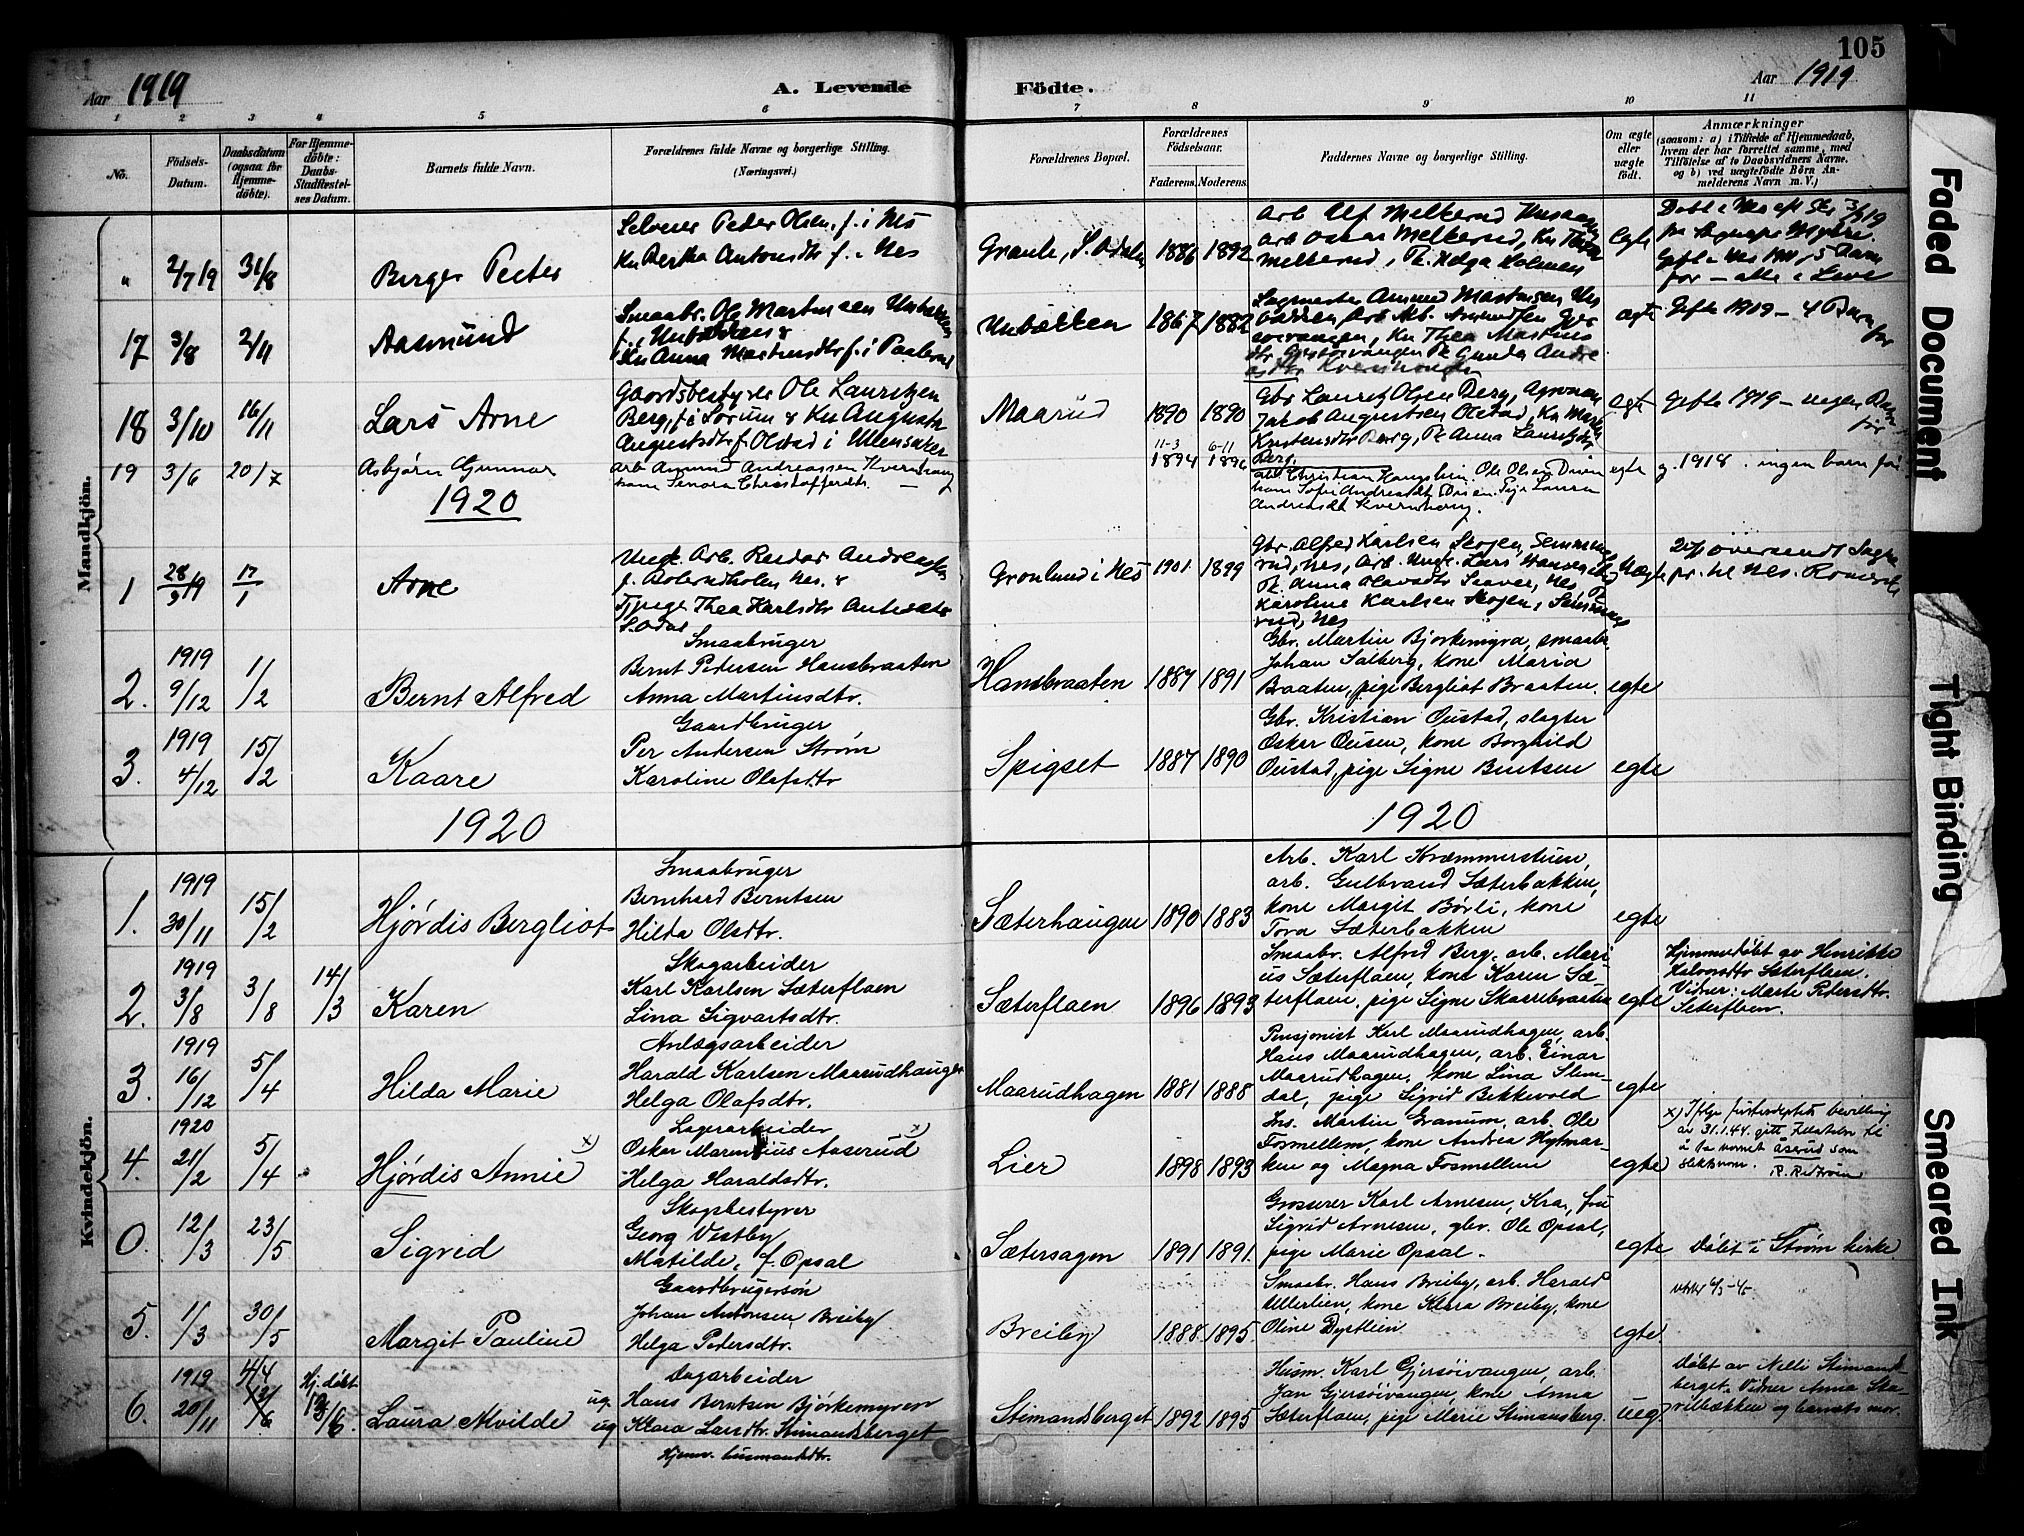 105
Aar 1919
A. Levende
Födte.
Aar 1919
1 2 3 4 5 6 7 8 9 10 11
No.
Födsels-Datum.
Daabsdatum (ogsaa for Hjemme-döbte).
For Hjemme-döbte: Daabs-Stadfæstel-ses Datum.
Barnets fulde Navn.
Forældrenes fulde Navne og borgerlige Stilling.
(Næringsvei.)
Forældrenes Bopæl.
Forældrenes Födselsaar.
Faderens. Moderens.
Faddernes Navne og borgerlige Stilling.
Om ægte eller uægte födt.
Anmærkninger
(saasom: a) i Tilfælde af Hjemmedaab, hvem der har forrettet samme, med Tilföielse af to Daabsvidners Navne. og b) ved uægtefödte Börn An-melderens Navn m. V.)
Mandkjön.
" 2/7 19 31/8 Berger Peder
Selveier Peder Olsen, f. i Nes
Ku Bertha Antonsdtr f. i Nes
1886 1892
Arb Alf Melkerud
Arb Oscar Melkerud, Ku
Melkerud, Pk. Helga Holmen
Egte
17 3/8 2/11 Aasmund
Smaabr. Ole Martinsen Unbakken
f. i Unbakken &
Ku Anna Martinsdtr f. i Paalerud
Unbakken 1867 1882
ægte Gifte 1919 - 4 Barn
før
18 3/10 16/11 Lars Arne
Gaardsbestyrer Ole Lauritzen
Berg, f. i Sørum & Ku Augusta
Augustsdtr f. Olstad i Ullensaker
Maarud 1890 1890
Gbr Laurits Olsen Berg, Agronom
Jakob Augustsen Olstad, Ku Maren
Kristensdtr Berg, Pk Anna Lauritsdtr
Berg.
ægte Gifte 1919 - ingen Barn
før
19 3/6 20/7 Asbjørn Gunnar
Arb Amund Andreassen Kvernhaug
kone Senora Christoffersdt.
11-3 1894 6-11 1896
Arb. Christian Haugslien. Ole Olsen Duen
kone Sofie Andreasdt Duen. Pige Laura
Andreasdt Kvernhaug.
egte g. 1918. ingen barn før
1920
1 28/9 19 17/1 Arne
Ungk. Arb. Reidar Andreassen
f. Aolerudholen Nes. &
Pige Thea Karlsdtr
S. Odal
Grønlund i Nes 1901 1899
Gbr. Alfred Karlsen Skogen, Semme
rud, Nes, Arb. Ungk. Lars
Pk. Anna Olavsdtr Seaver, Nes, Pk
Karoline Karlsen Skogen, Semme
rud, Nes
Uægte
2. 1919 9/12 1/2 Bernt Alfred
Smaabruger
Bernt Pedersen Hansbraaten
Anna Martinsdtr.
Hansbraaten 1887 1891
Gbr. Martin Bjørkemyra, smaabr.
Johan Solberg, kone Maria
Braaten, pige Bergliot Braaten.
egte
3. 1919 4/12 15/2 Kaare
Gaardbruger
Per Andersen Strøm
Karoline Olafsdtr
Spigset 1887 1890
Gbr. Kristian Oustad, slagter
Oskar Ousen, kone Borghild
Oustad, pige Signe Bentsen
egte
1920
1920
Kvindekjön.
1. 1919 30/11 15/2 Hjørdis Bergliot
Smaabruger
Bernhard Berntsen
Hilda Olsdtr.
Sæterhaugen 1890 1883
Arb. Karl Kræmmerstuen,
arb. Gulbrand Sæterbakken,
kone Margit Børli, kone
Tora Sæterbakken
egte
2. 1919 3/8 3/8 14/3 Karen
Skogarbeider
Karl Karlsen Sæterflaen
Lina Sigvartsdtr.
Sæterflaen 1896 1893
Smaabr. Alfred Berg, arb. Mari
us Sæterflaen, kone Karen Sæ-
terflaen, pige Signe Skarribraaten
egte
Hjemmedøbt av Henrikke
Halvorsdtr Sæterflaen.
Vidner: Marte Pedersdtr.
Seterflaen.
3. 1919 16/12 5/4 Hilda Marie
Anlægsarbeider
Harald Karlsen Maarudhaugen
Helga Olafsdtr.
Maarudhagen 1881 1888
Pensjonist Karl Maarudhagen, arb.
Hans Maarudhagen, arb. Einar
Maarudhagen, kone Lina Slem-
dal, pige Sigrid Bekkevold
egte
4. 1920 21/2 5/4 Hjørdis Annie x)
Lagerarbeider
Oskar Marentius Aaserud x)
Helga Haraldsdtr.
Lier 1898 1893
Ins. Martin Granum, arb. Ole
Fosmellem, kone Andrea Hytmar-
ken og Magna Fosmellem
egte
x) Ifølge justisdeptets bevilling
av 31.1.44. gitt tillatelse til
å ta navnet Åserud som
slektsnavn.
0. 12/3 23/5 Sigrid
Skogbestyrer
Georg Vestby
Matilde, f. Opsal
Sætersagen 1891 1891.
Grosserer Karl Arnesen, Kra, fru
Sigrid Arnesen, gbr. Ole Opsal,
pige Marie Opsal.
egte Døbt i Strøm kirke
5. 1/3 30/5 Margit Pauline
Gaardbrugersøn
Johan Antonsen Breiby
Helga Pedersdtr.
Breiby 1888 1895
Smaabr. Hans Breiby, arb. Harald
Ullerlien, kone Klara Breiby, kone
Oline Dystlien.
egte
6. 1919 20/11 4/4 Hj. døbt 13/6 Laura Alvilde
Dagarbeider
ug. Hans Berntsen Bjørkemyren
ug Klara Larsdtr. Stimandsberget
Hjemv. husmandsdtr.
Stimandsberget 1892 1895
Husm. Karl Gjersøivangen, arb.
Jan Gjersøivangen, kone Anna
Sæterflaen, pige Marie Stimansberg.
ueg.
Døbt av Nelli Stimands-
berget. Vidner Anna Ska-
rilbækken og barnets mor.
Faded Document
Tight Binding
Smeared Ink